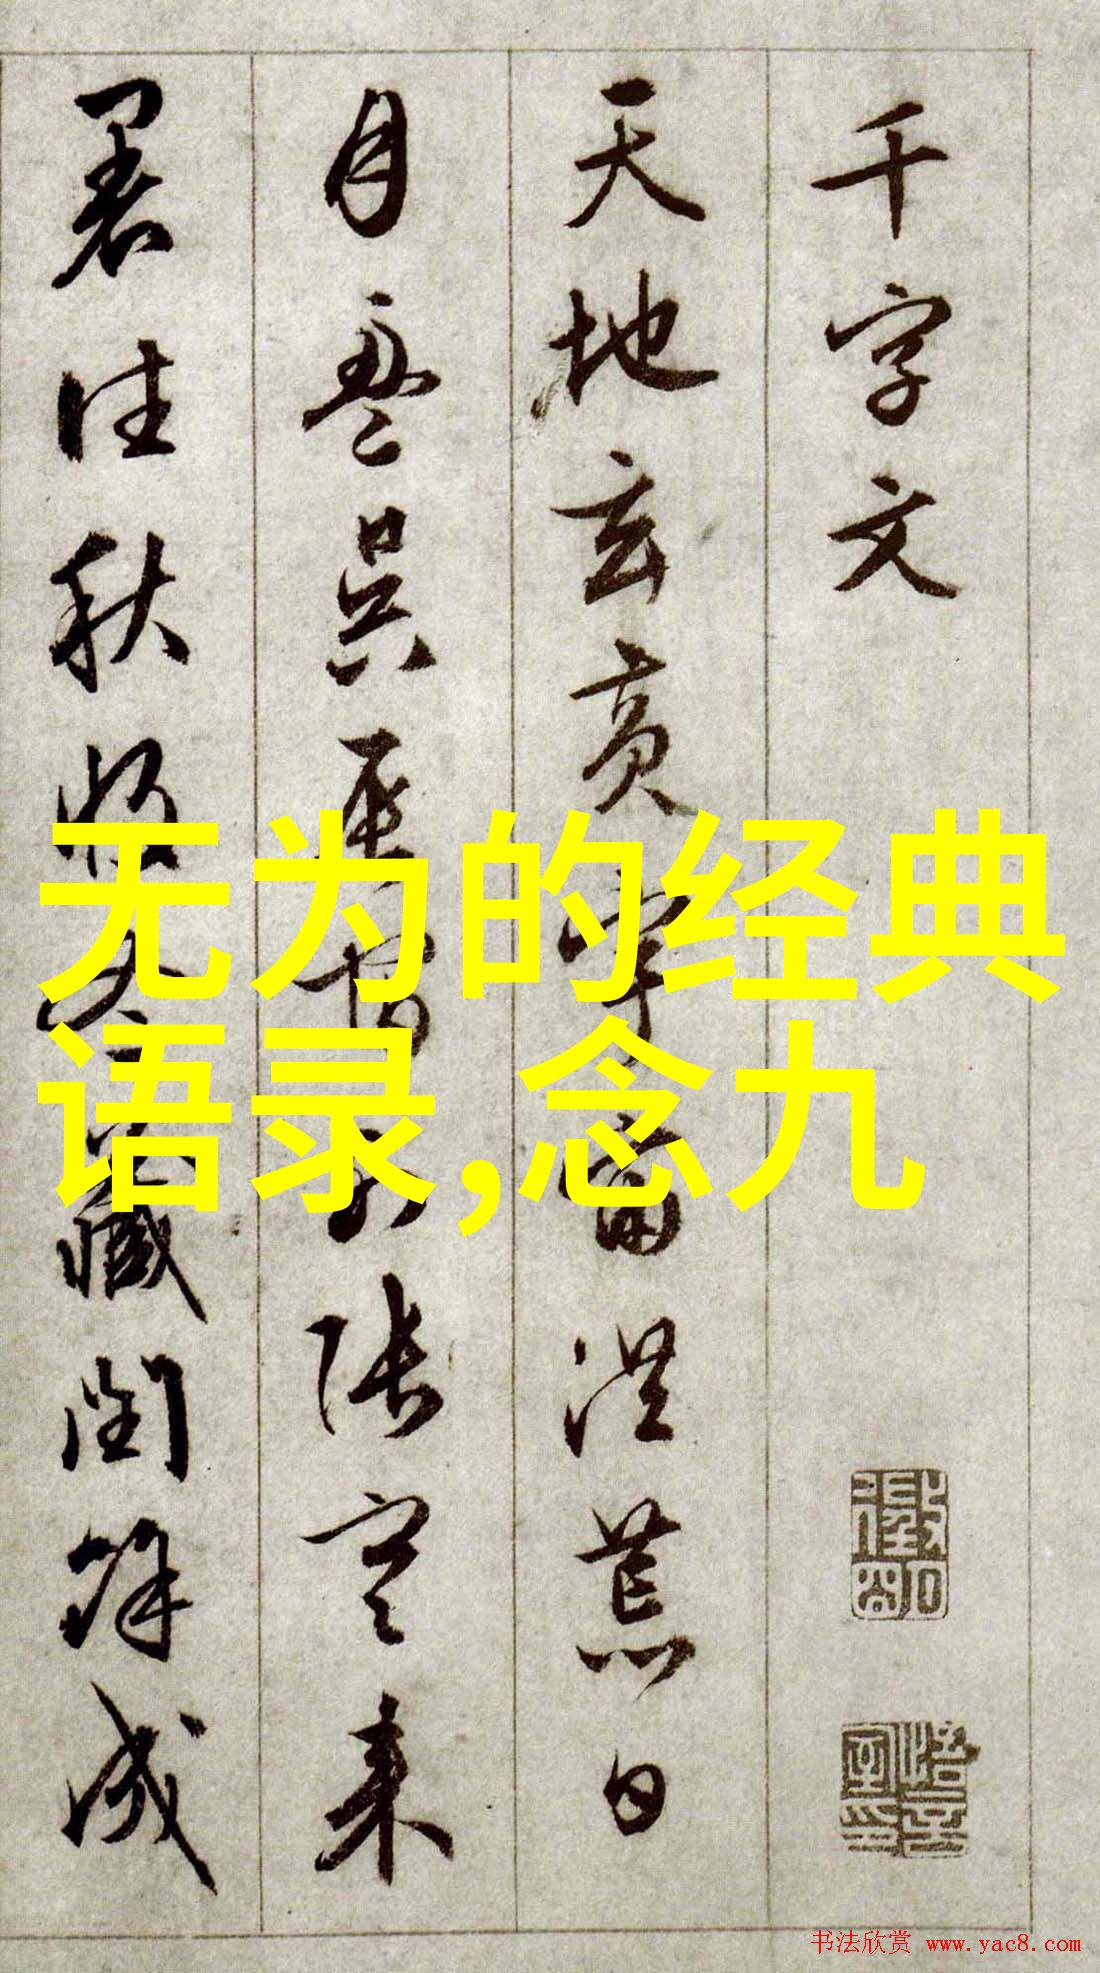 千字文
天地玄黃宇宙洪荒日
月盈昃辰宿列張寒來
暑往秋收冬藏閏餘成
无为的经典
语录,念九
书法欣赏 www.yac8.com